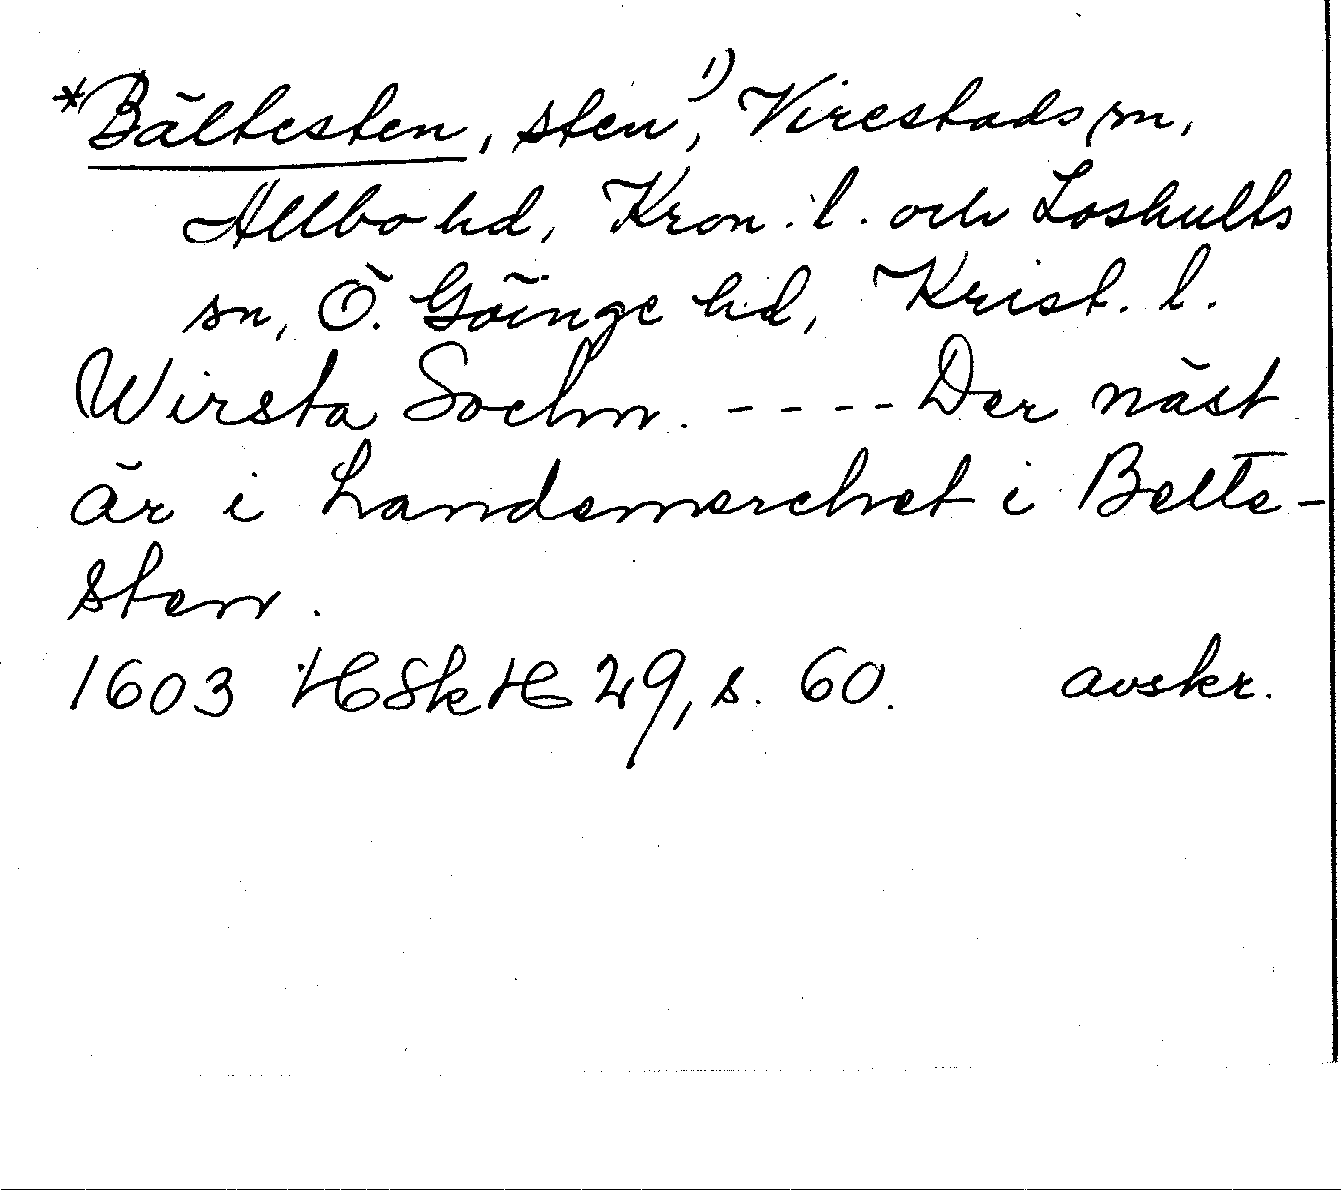 *Bältesten, sten¹⁾, Virestads sn,
Allbo hd, Kron. l. och Loshults
sn, Ö. Göinge hd, Krist. l.
Wirsta Sochn. ---- Der näst
är i Landemerchet i Belte-
sten.
1603 HSkH 29, s. 60. avskr.